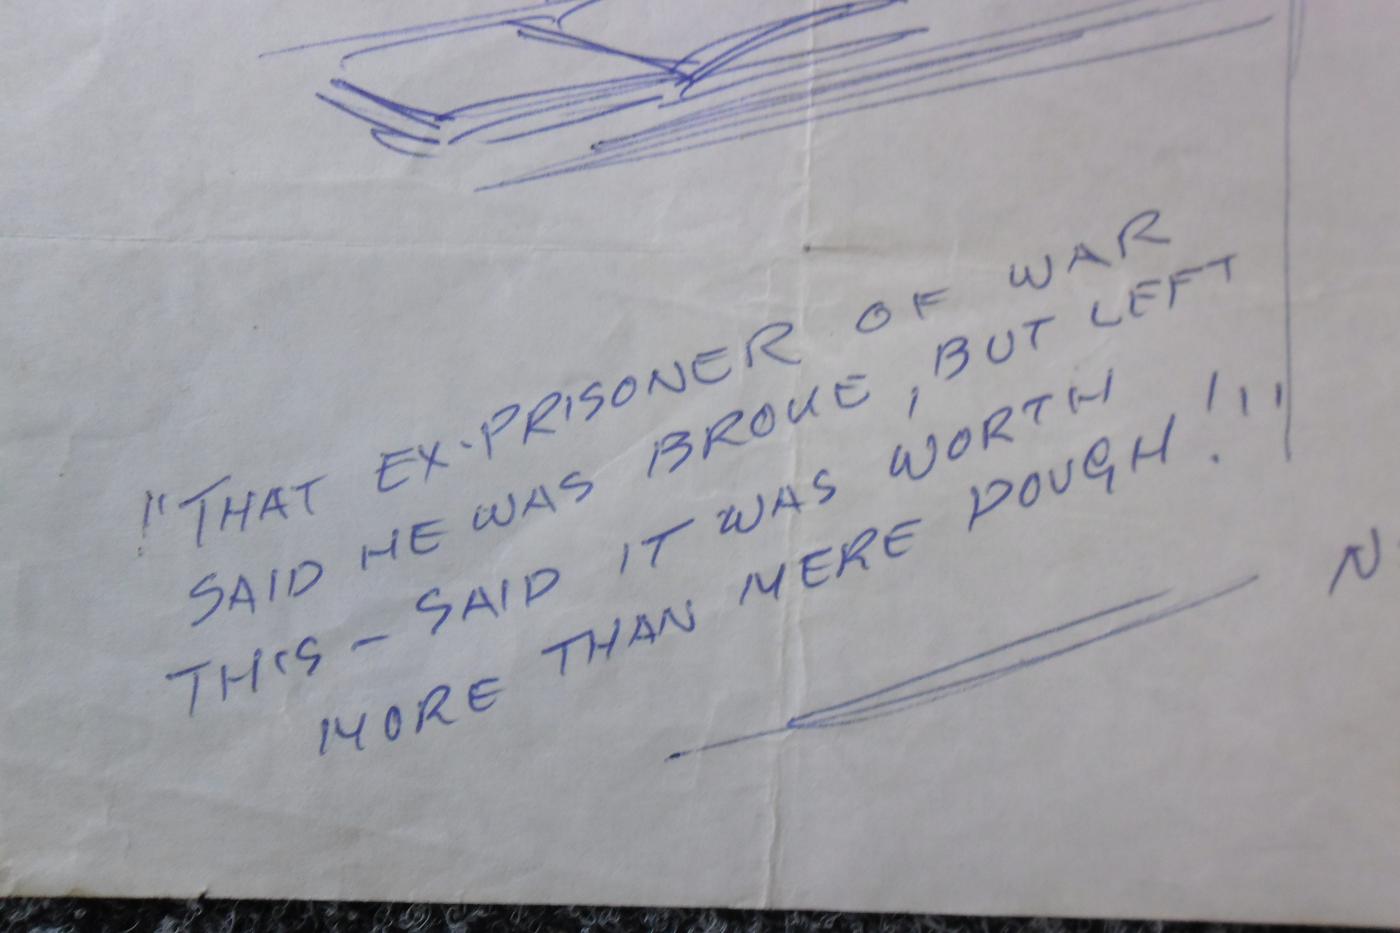 "THAT EX-PRISONER OF WAR
SAID HE WAS BROKE, BUT LEFT
THIS - SAID IT WAS WORTH
MORE THAN MERE DOUGH!"
N